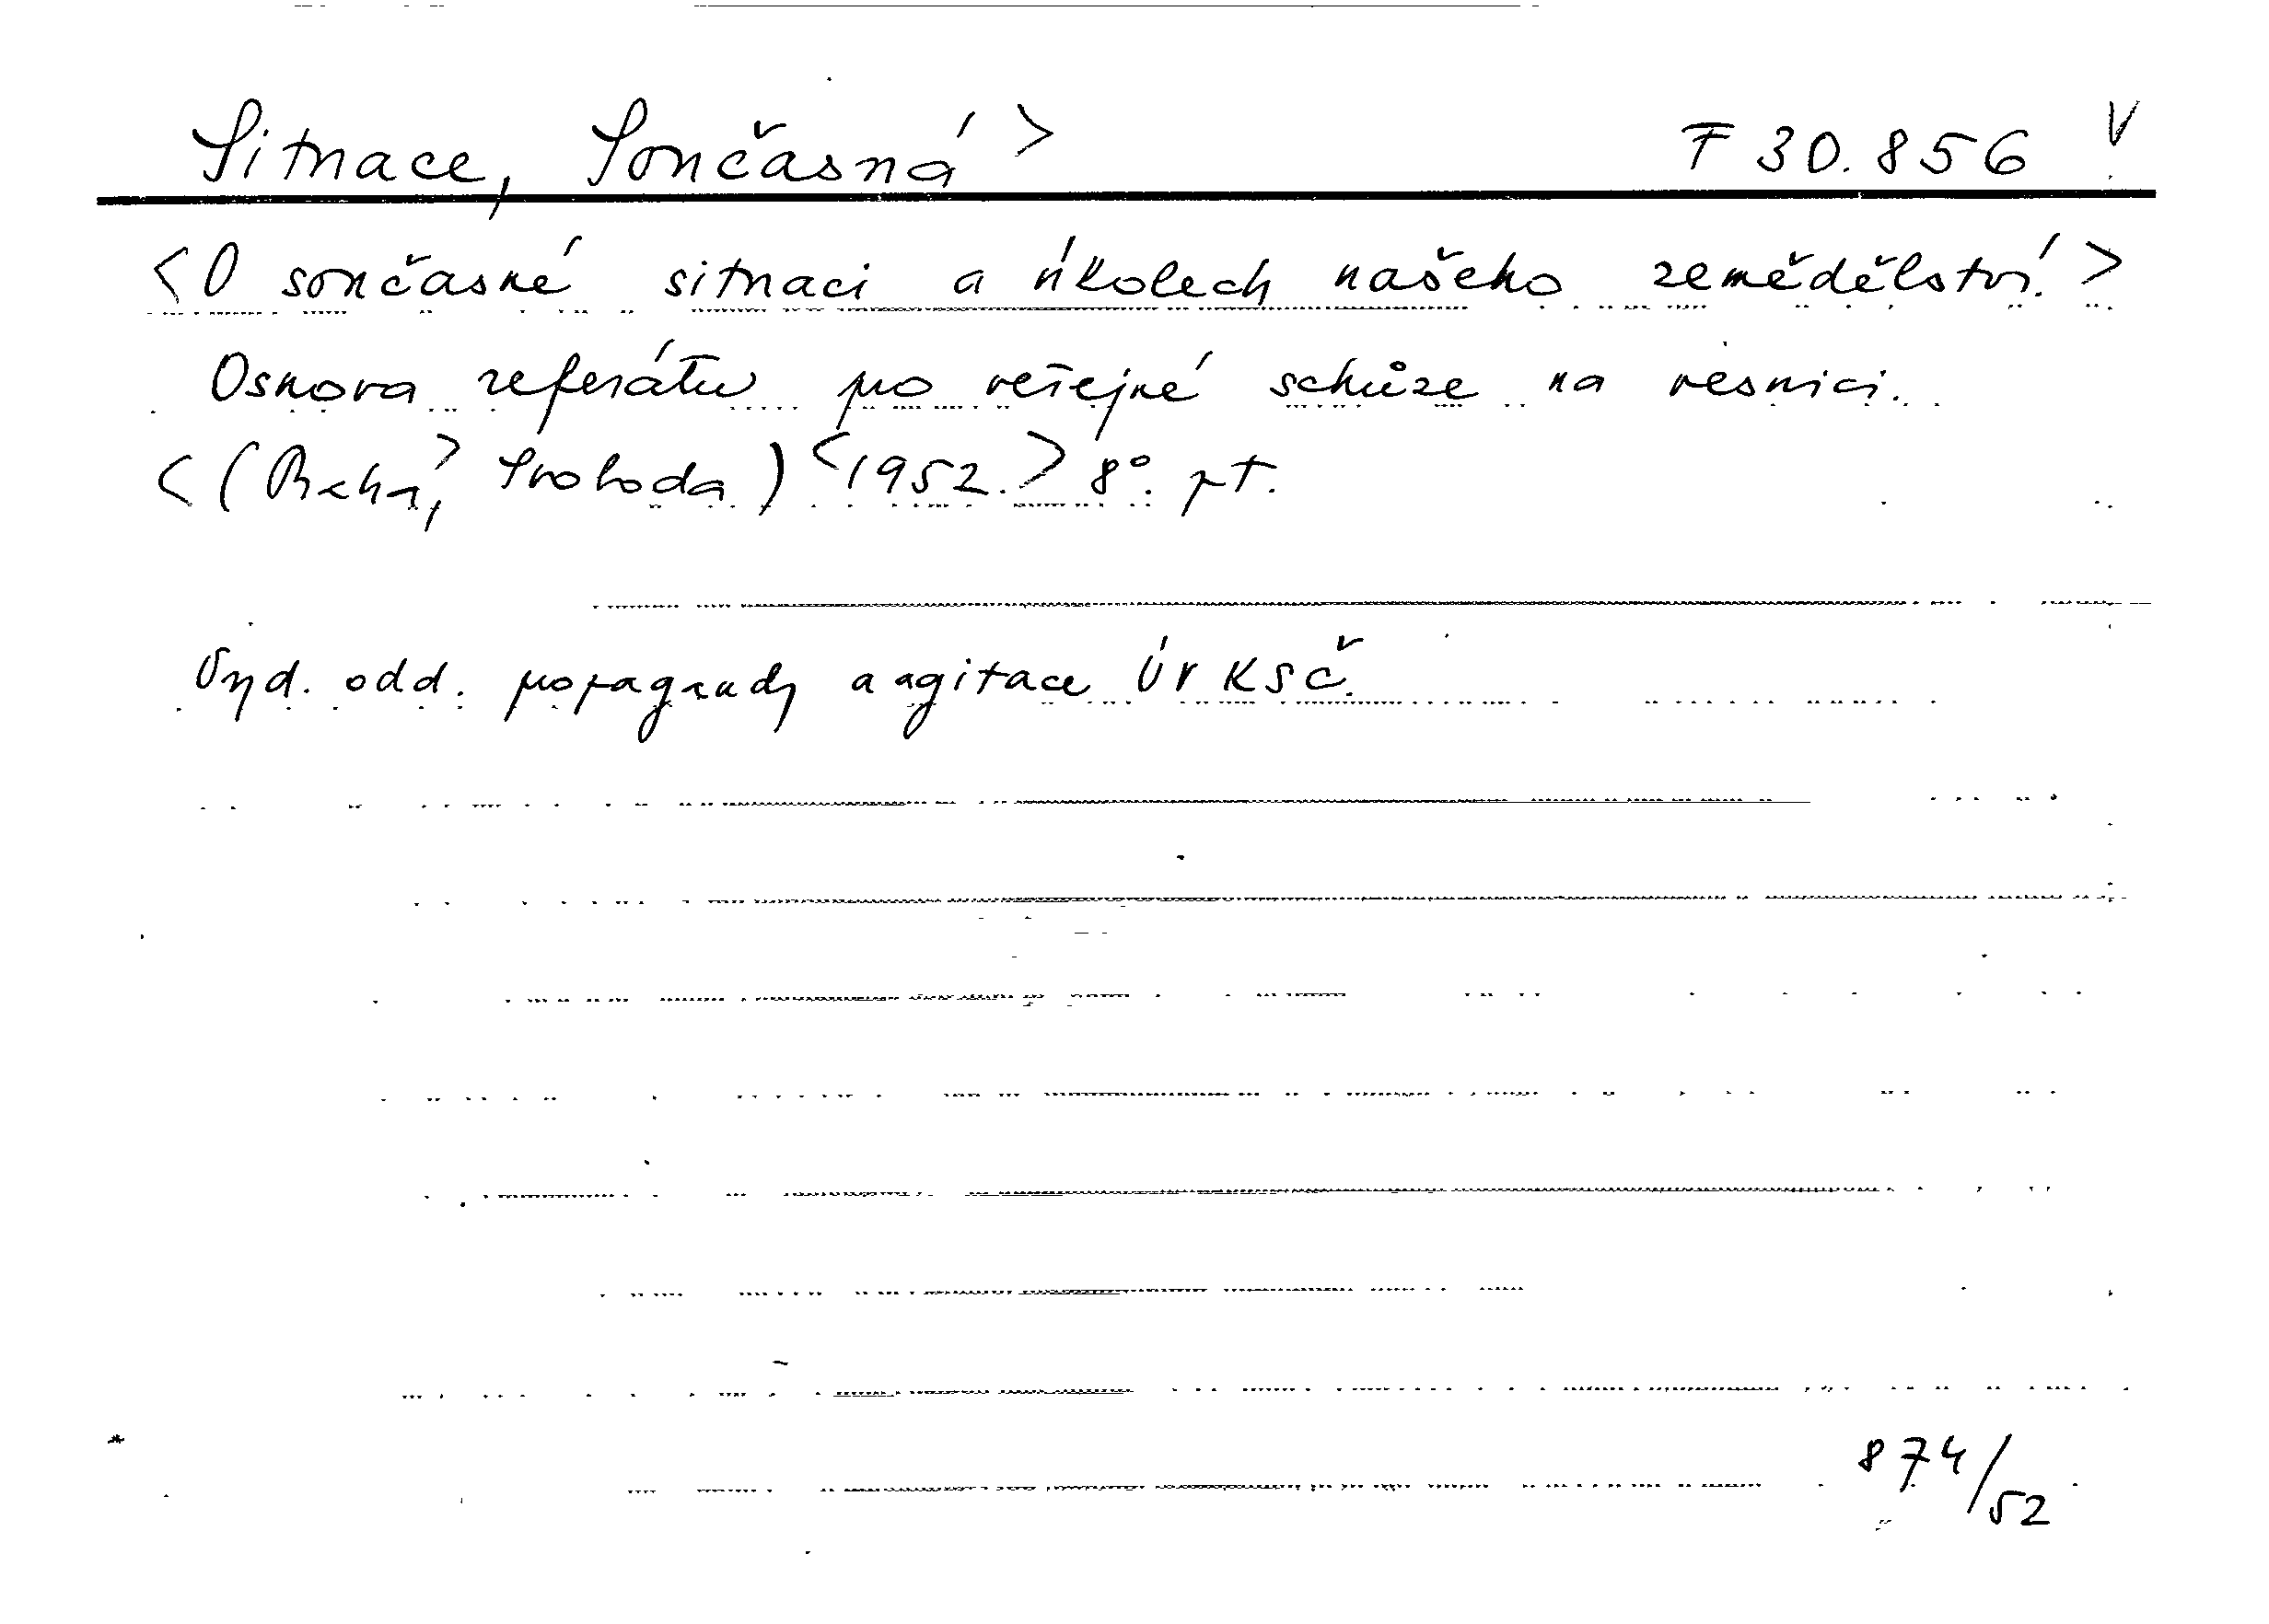 Situace, Současná > F 30.856 V
<O současné situaci a úkolech našeho zemědělství.>
Osnova referátu pro veřejné schůze na vesnici.
<(Praha,> Svoboda) <1952.> 8°. pt.
Vyd. odd. propagandy a agitace ÚV KSČ.
874/52